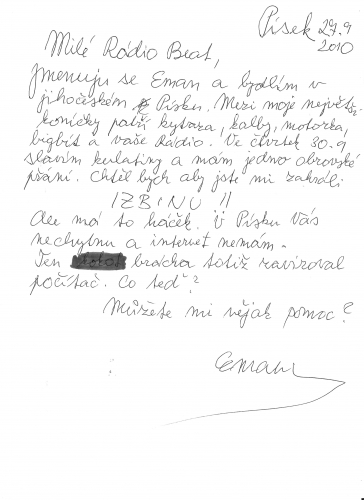 Písek 27.9
2010
Milé Rádio Beat,
Jmenuju se Eman a bydlím v
jihočeském Písku. Mezi moje největší
koníčky patří kytara, kalby, motorka,
bigbít a vaše Rádio. Ve čtvrtek 30.9
slavím kulatiny a mám jedno obrovské
přání. Chtěl bych aby jste mi zahráli
!ZBINU!!
Ale má to háček. V Písku Vás
nechytnu a internet nemám.
Ten brácha totiž zaviroval
počítač. Co teď?
Můžete mi nějak pomoc?
Eman